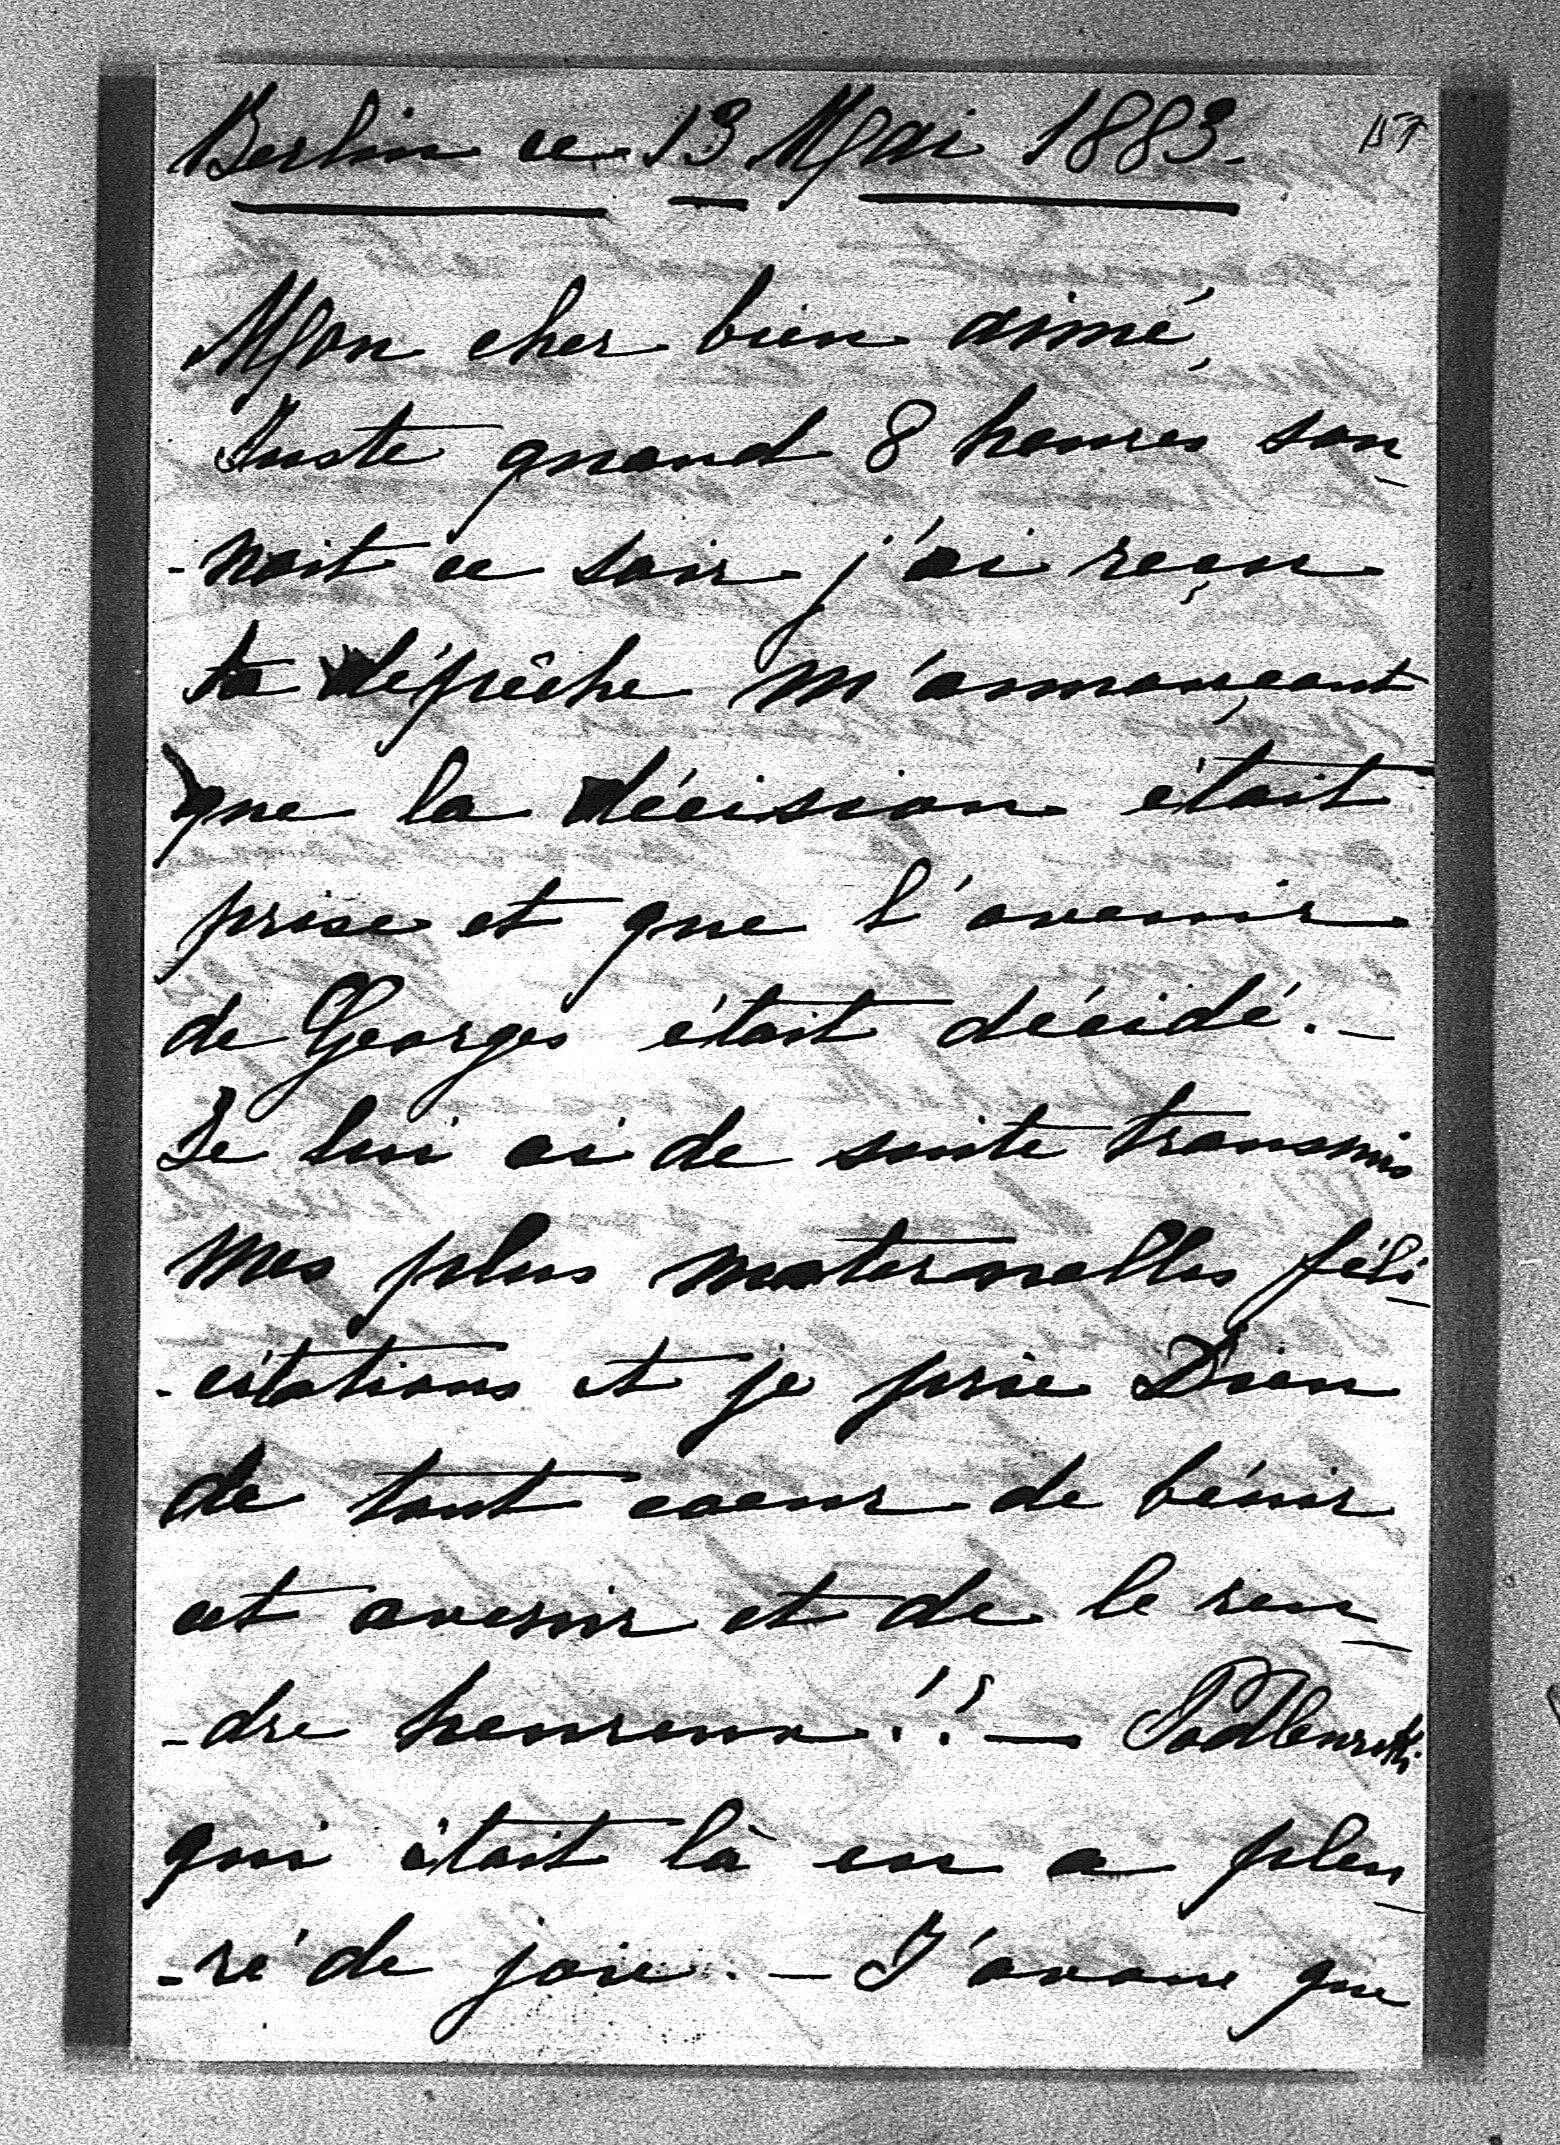 Berlin ce 13 Mai 1883.
Mon cher bien aimé,
Juste quand 8 heures son-
-nait ce soir j'ai reçu
ta dépêche m'annonçant
que la décision était
prise et que l'avenir
de Georges était décidé. -
Je lui ai de suite transmis
mes plus maternelles féli-
-citations et je prie Dieu
de tout coeur de bénir
cet avenir et de le ren-
-dre heureux!! -
qui était là en a pleu-
-ré de joie. - J'avoue que